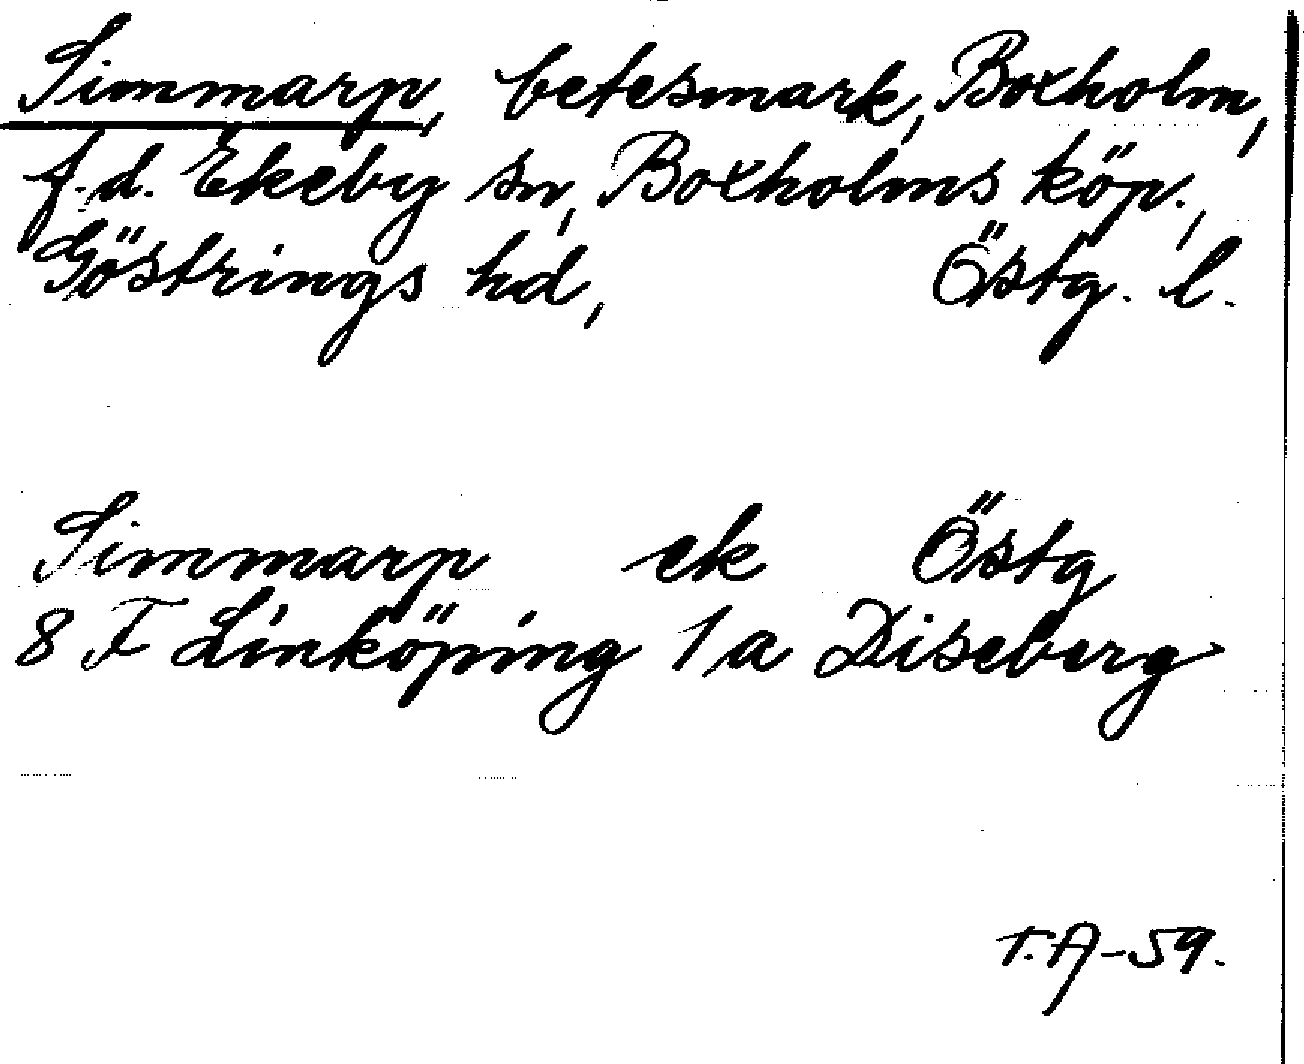 Simmarp, betesmark, Boxholm,
f.d. Ekeby sn, Boxholms köp.,
Göstrings hd, Östg. l.
Simmarp ek Östg
8 F Linköping 1a Diseberg
T.A-59.